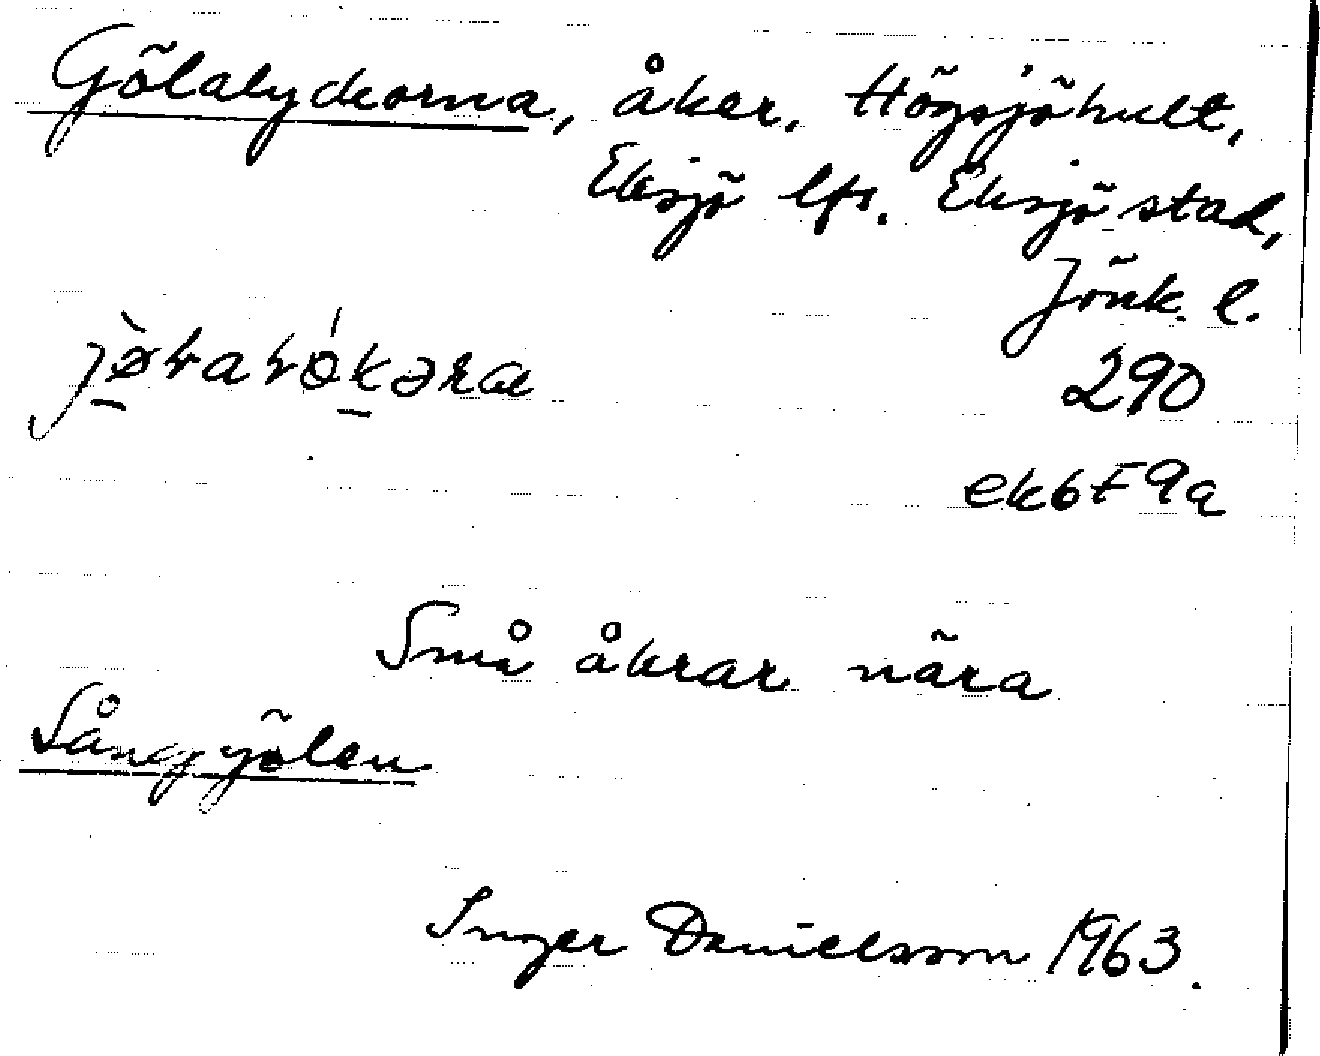 Gölalyckorna, åker, Högsjöhult,
Eksjö lfs. Eksjö stad,
Jönk. l.
290
ek6f9a
Små åkrar nära
Sånggölen
Inger Danielsson 1963.